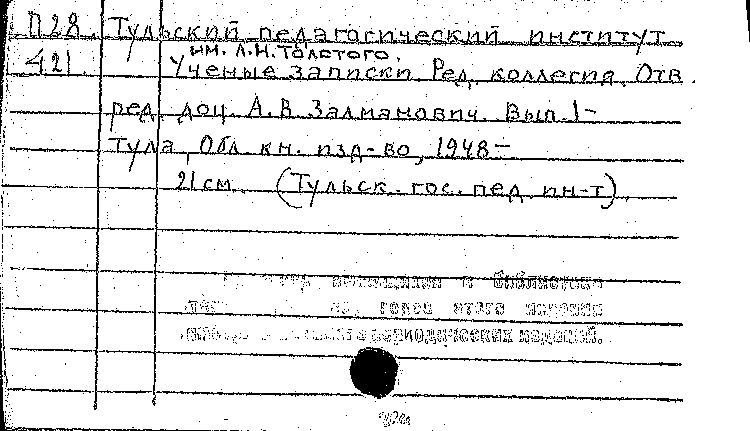 П28. Тульский педагогический институт
им. Л.Н. Толстого.
421. Ученые записки. Ред. коллегия. Отв.
ред. доц. А.В. Залманович. Вып. 1-
Тула, Обл. кн. изд-во, 1948-
21 см. (Тульск. гос. пед. ин-т).
имеющихся в библиотеке
годов этого издания
периодических изданий.